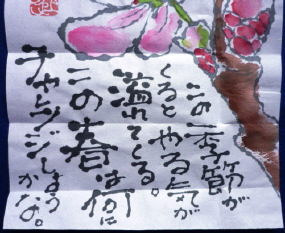 この季節が
くるとやる気が
溢れてくる。
この春は何に
チャレンジしよう
かな。